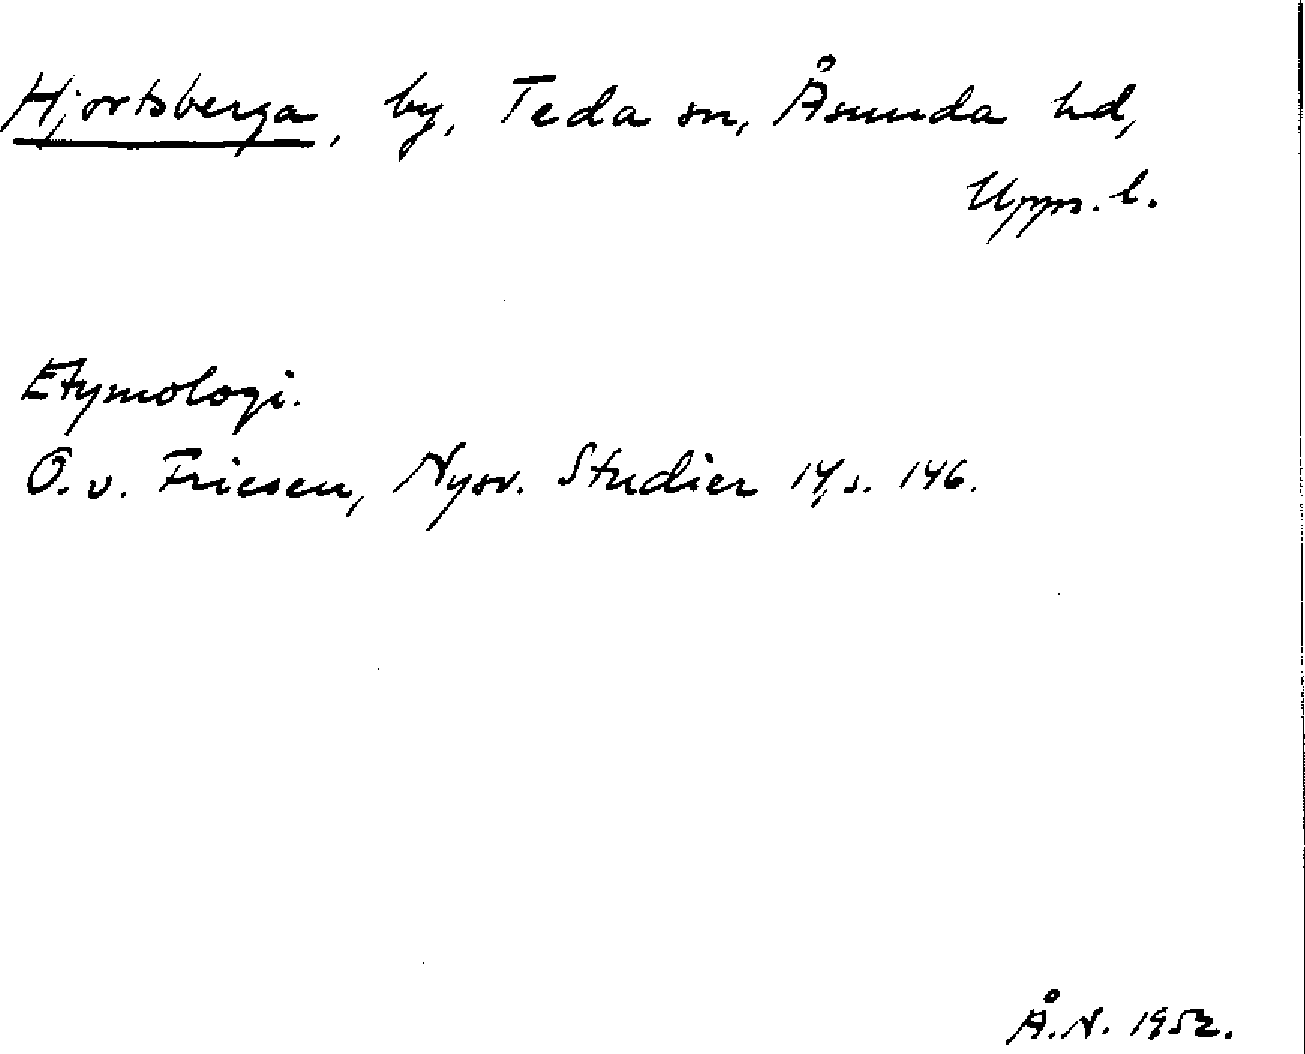 Hjortsberga, by, Teda sn, Åsunda hd,
Upps. l.
Etymologi.
O. v. Friesen, Nysv. Studier 14, s. 146.
Å. N. 1952.